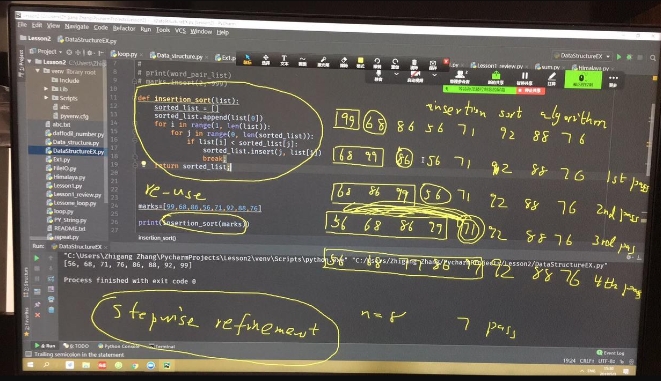 File Edit View Navigate Code Refactor Run Tools VCS Window Help
Lesson2 DataStructureEX.py
Project
loop.py Data_structure.py
Lesson1_review.py sum.py Himalaya.py
DataStructureEX
Lesson2
venv library root
Include
Lib
Scripts
abc
pyvenv.cfg
abc.txt
daffodil_number.py
Data_structure.py
DataStructureEX.py
Ex1.py
FileIO.py
Himalaya.py
Lesson1.py
Lesson1_review.py
loop.py
PY_String.py
README.txt
# print(word_pair_list)
def insertion_sort(list):
sorted_list = []
sorted_list.append(list[0])
for i in range(1, len(list)):
for j in range(0, len(sorted_list)):
if list[i] < sorted_list[j]:
sorted_list.insert(j, list[i])
break;
return sorted_list;
re-use
marks=[99,68,86,56,71,92,88,76]
print(insertion_sort(marks))
insertion_sort()
insertion sort algorithm
99 68 86 56 71 92 88 76
68 99 86 56 71 92 88 76 1st pass
68 86 99 56 71 92 88 76 2nd pass
56 68 86 99 71 92 88 76 3rd pass
92 88 76 4th pass
Run: DataStructureEX
"C:\Users\Zhigang Zhang\PycharmProjects\Lesson2\venv\Scripts\python
[56, 68, 71, 76, 86, 88, 92, 99]
Process finished with exit code 0
stepwise refinement
n=8 7 pass
Run TODO Python Console Terminal
Event Log
Trailing semicolon in the statement
19:24 CRLF UTF-8